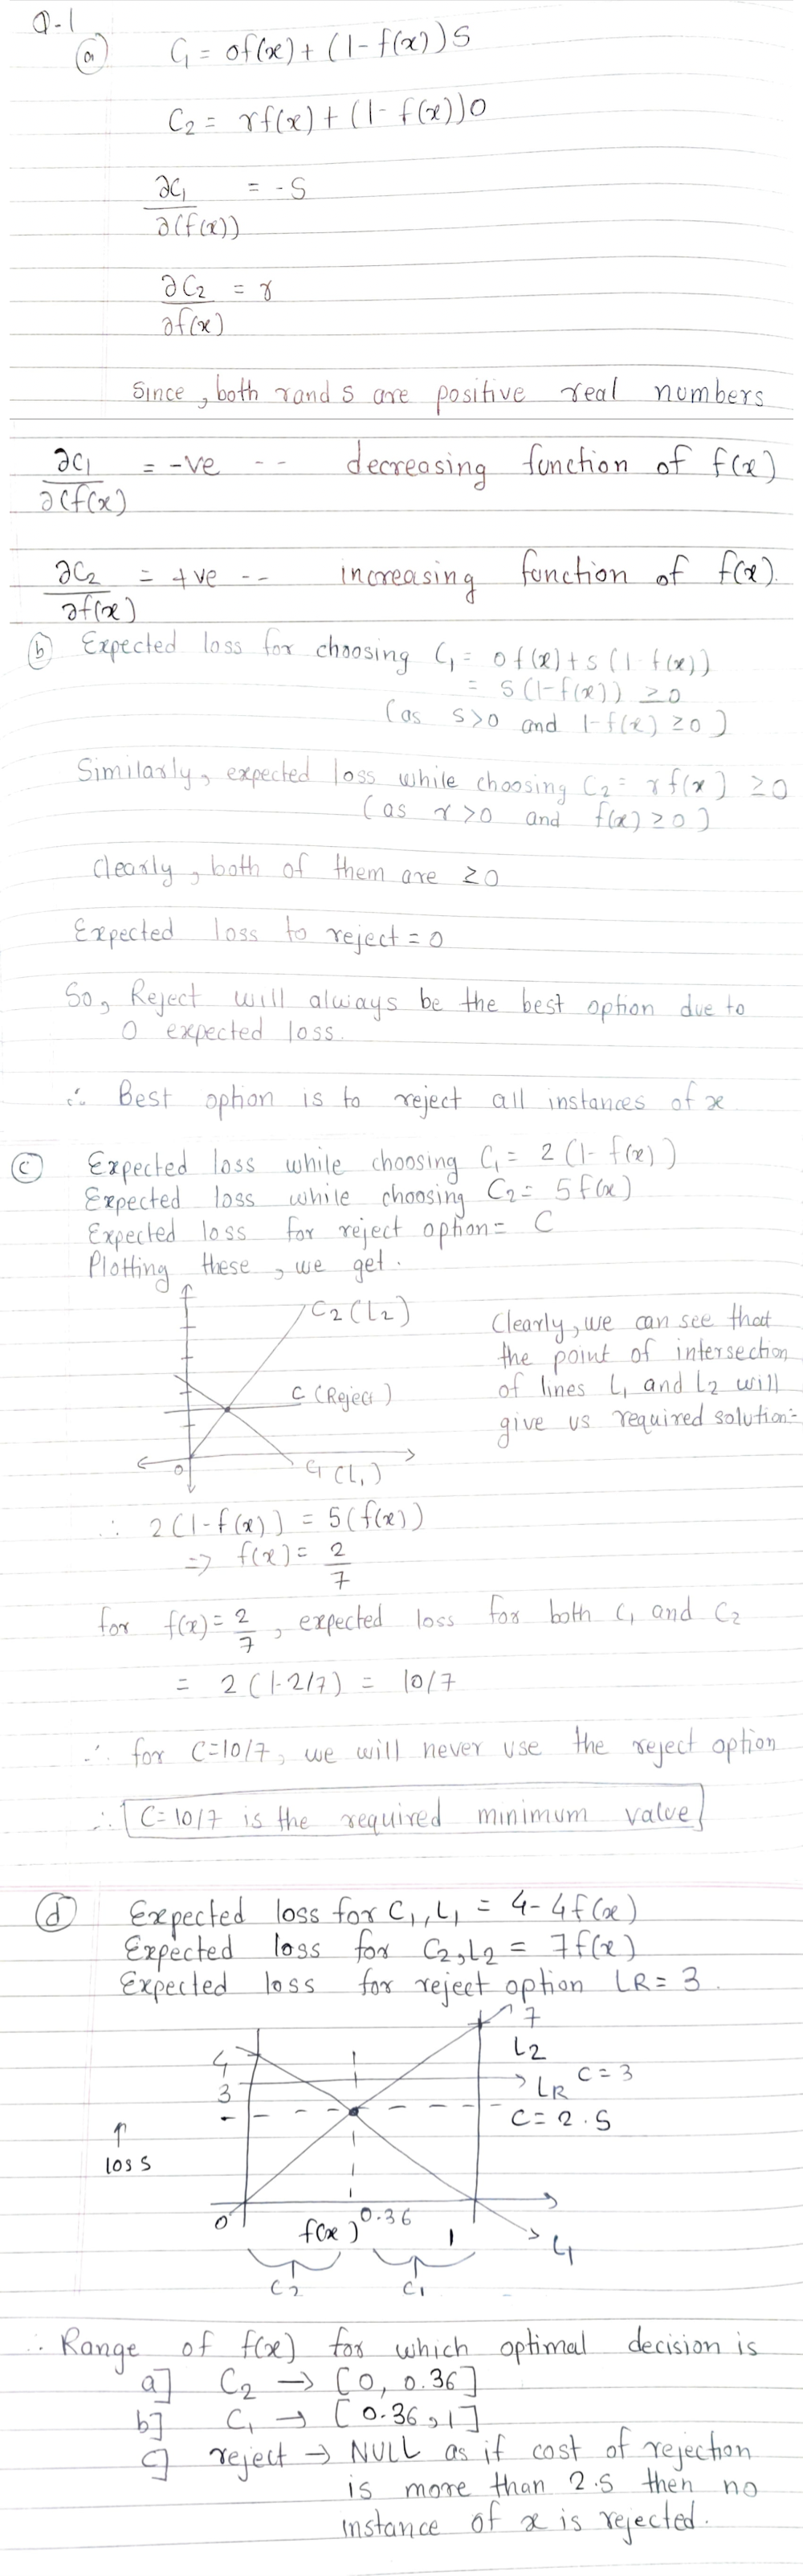 Q-1
(a) C₁ = 0f(x) + (1-f(x))S
C₂ = rf(x) + (1-f(x))0
∂C₁/∂(f(x)) = -S
∂C₂/∂f(x) = r
Since, both r and s are positive real numbers
∂C₁/∂(f(x)) = -ve -- decreasing function of f(x)
∂C₂/∂f(x) = +ve -- increasing function of f(x).
(b) Expected loss for choosing C₁ = 0f(x) + s(1-f(x))
= s(1-f(x)) ≥0
(as s>0 and 1-f(x) ≥0)
Similarly, expected loss while choosing C₂ = rf(x) ≥0
(as r>0 and f(x)≥0)
Clearly, both of them are ≥0
Expected loss to reject = 0
So, Reject will always be the best option due to
0 expected loss.
∴ Best option is to reject all instances of x
(c) Expected loss while choosing C₁ = 2(1-f(x))
Expected loss while choosing C₂ = 5f(x)
Expected loss for reject option = C
Plotting these, we get.
C₂(L₂)
C (Reject)
0
C₁(L₁)
Clearly, we can see that
the point of intersection
of lines L₁ and L₂ will
give us required solution:
∴ 2(1-f(x)) = 5(f(x))
=> f(x) = 2/7
for f(x) = 2/7, expected loss for both C₁ and C₂
= 2(1-2/7) = 10/7
∴ for C=10/7, we will never use the reject option
∴ C=10/7 is the required minimum value
(d) Expected loss for C₁, L₁ = 4-4f(x)
Expected loss for C₂, L₂ = 7f(x)
Expected loss for reject option LR = 3.
7
4
L₂
3
LR C=3
C=2.5
↑
loss
0
f(x)
0.36
1
L₁
C₂
C₁
∴ Range of f(x) for which optimal decision is
a] C₂ → [0, 0.36]
b] C₁ → [0.36, 1]
c] reject → NULL as if cost of rejection
is more than 2.5 then no
instance of x is rejected.